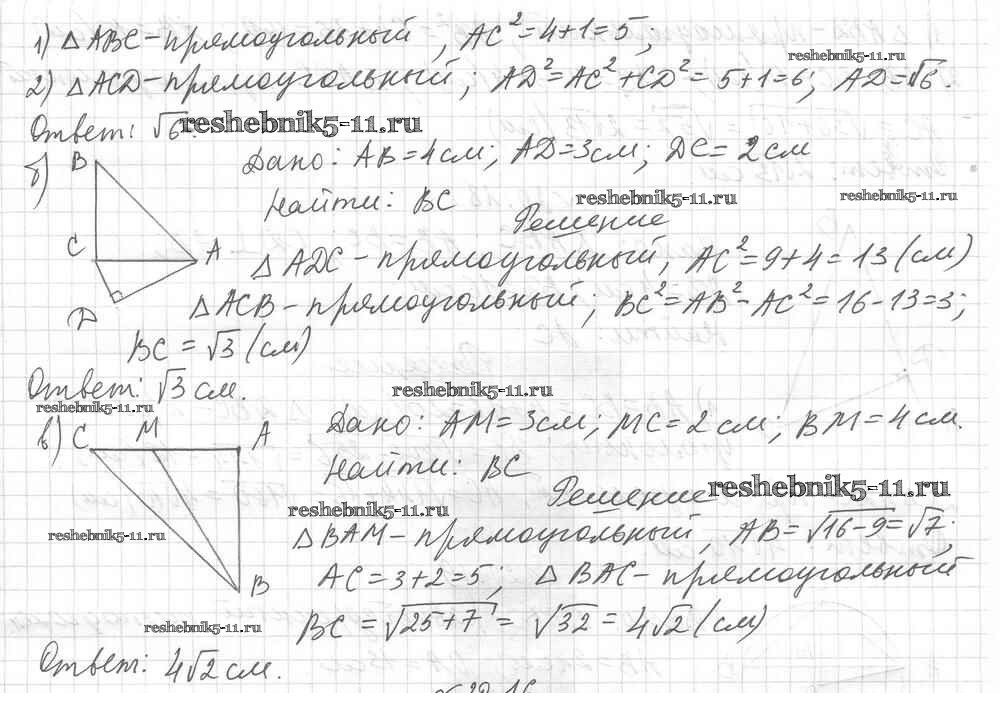 1) △ABC – прямоугольный, AC² = 4+1 = 5;
reshebnik5-11.ru
2) △ACD – прямоугольный; AD² = AC² + CD² = 5+1 = 6; AD = √6.
Ответ: √6. reshebnik5-11.ru
б) B Дано: AB = 4 см; AD = 3 см; DC = 2 см
Найти: BC reshebnik5-11.ru reshebnik5-11.ru
Решение
C A △ADC – прямоугольный, AC² = 9+4 = 13 (см)
D △ACB – прямоугольный; BC² = AB² - AC² = 16-13 = 3;
BC = √3 (см)
Ответ: √3 см. reshebnik5-11.ru
reshebnik5-11.ru
в) C M A Дано: AM = 3 см; MC = 2 см; BM = 4 см.
Найти: BC
Решение reshebnik5-11.ru
reshebnik5-11.ru
reshebnik5-11.ru △BAM – прямоугольный, AB = √16-9 = √7;
B AC = 3+2 = 5; △BAC – прямоугольный
reshebnik5-11.ru BC = √25+7 = √32 = 4√2 (см)
Ответ: 4√2 см.